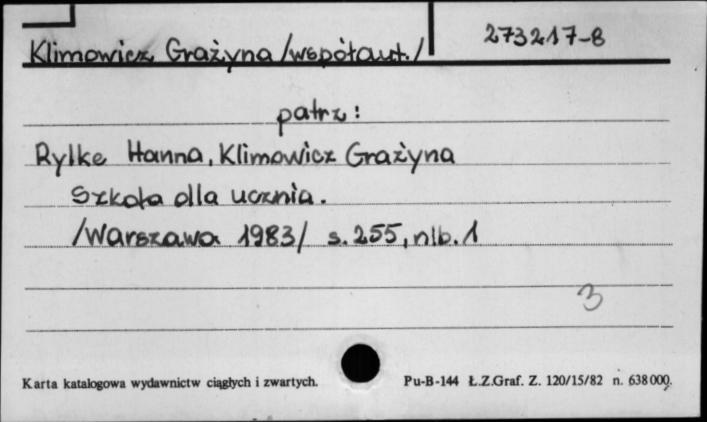 273217-B
Klimowicz Grażyna /współaut./
patrz:
Rylke Hanna, Klimowicz Grażyna
Szkoła dla ucznia.
/Warszawa 1983/ s. 255, nlb. 1
3
Karta katalogowa wydawnictw ciągłych i zwartych. Pu-B-144 Ł.Z.Graf. Z. 120/15/82 n. 638000.